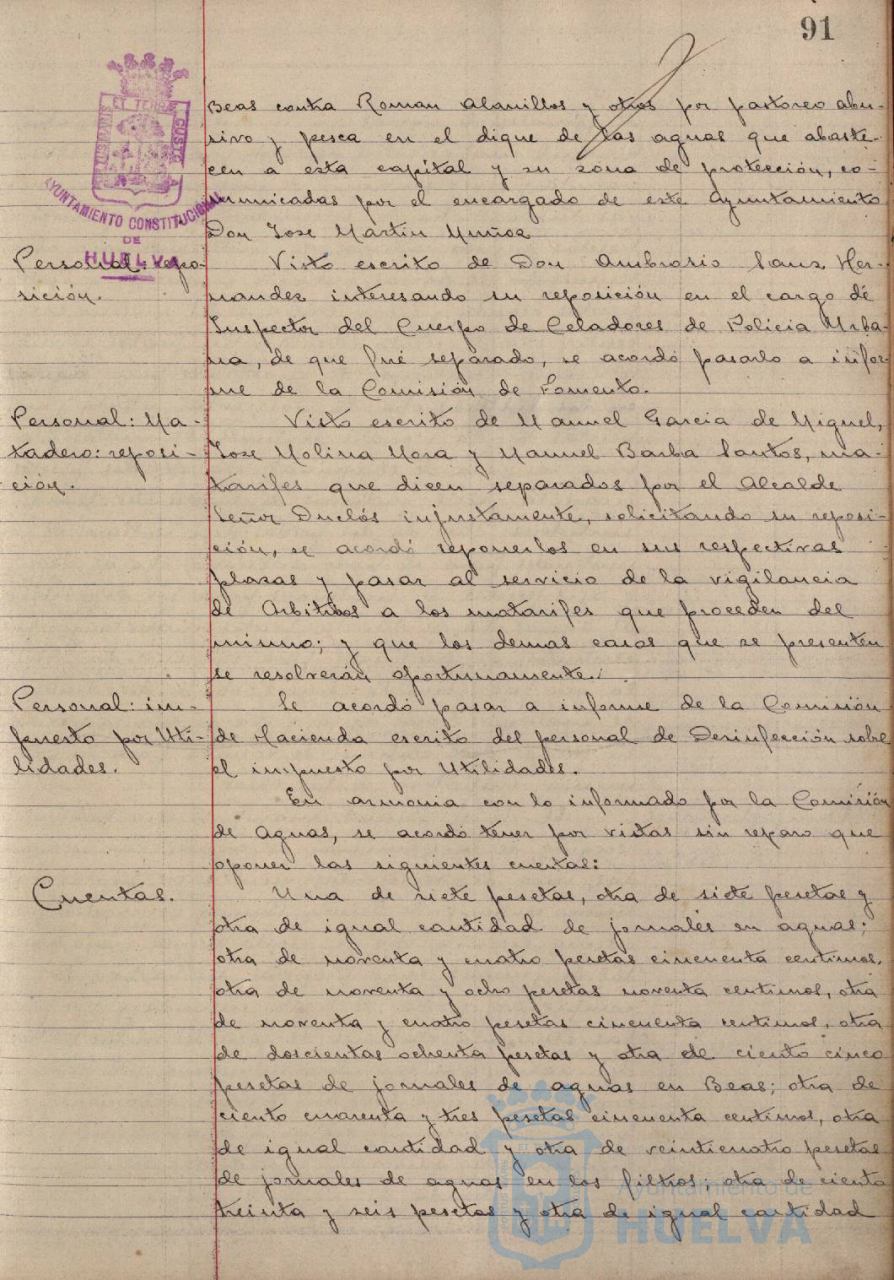 91
Beas contra Roman Alamillos y otros por pastoreo abu-
sivo y pesca en el dique de las aguas que abaste-
cen a esta capital y su zona de protección, co-
municadas por el encargado de este Ayuntamiento
Don Jose Martin Muñoz
AYUNTAMIENTO CONSTITUCIONAL
DE
HUELVA
Personal: repo-
sición.
Visto escrito de Don Ambrosio Sanz Her-
nandez interesando su reposición en el cargo de
Inspector del Cuerpo de Celadores de Policia Urba-
na, de que fué separado, se acordó pasarlo a infor-
me de la Comisión de Fomento.
Personal: Ma-
tadero: reposi-
ción.
Visto escrito de Manuel Garcia de Miguel,
Jose Molina Mora y Manuel Barba Santos, ma-
tarifes que dicen separados por el Alcalde
Señor Duclós injustamente, solicitando su reposi-
ción, se acordó reponerlos en sus respectivas
plazas y pasar al servicio de la vigilancia
de Arbitrios a los matarifes que proceden del
mismo; y que los demas casos que se presenten
se resolverán oportunamente.
Personal: im-
puesto por Uti-
lidades.
Se acordó pasar a informe de la Comisión
de Hacienda escrito del personal de Desinfección sobre
el impuesto por Utilidades.
En armonia con lo informado por la Comisión
de Aguas, se acordó tener por vistas sin reparo que
oponer las siguientes cuentas:
Cuentas.
Una de siete pesetas, otra de siete pesetas y
otra de igual cantidad de jornales en aguas;
otra de noventa y cuatro pesetas cincuenta centimos,
otra de noventa y ocho pesetas noventa centimos, otra
de noventa y cuatro pesetas cincuenta centimos, otra
de doscientas ochenta pesetas y otra de ciento cinco
pesetas de jornales de aguas en Beas; otra de
ciento cuarenta y tres pesetas cincuenta centimos, otra
de igual cantidad y otra de veinticuatro pesetas
de jornales de aguas en los filtros; otra de ciento
treinta y seis pesetas y otra de igual cantidad
Ayuntamiento de
HUELVA